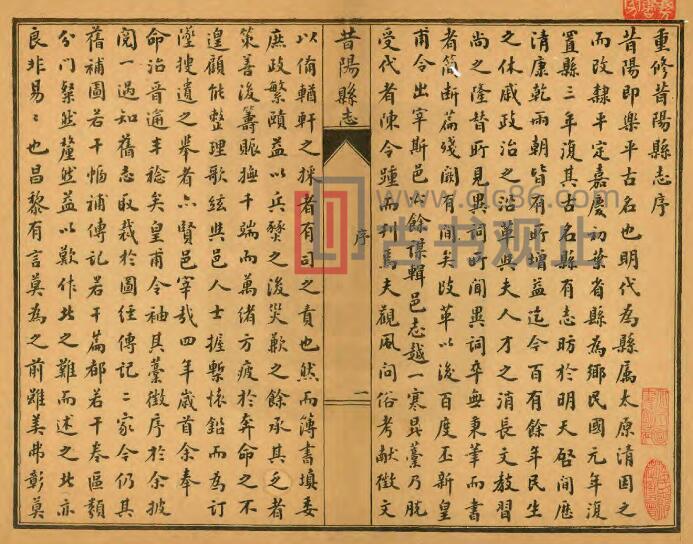 重修昔陽縣志序
昔陽即樂平古名也明代為縣屬太原清因之
而改隸平定嘉慶初葉省縣為鄉民國元年復
置縣三年復其古名縣有志昉於明天啓間歷
清康乾兩朝皆有所增益迄今百有餘年民生
之休戚政治之沿革與夫人才之消長文教習
尚之隆替所見異詞所聞異詞卒無秉筆而書
者簡斷篇殘闕有間矣改革以後百度丕新皇
甫令出宰斯邑公餘輯邑志越一寒暑藁乃脫
受代者陳令踵而刊焉夫觀風問俗考獻徵文
昔陽縣志
序
以備輶軒之採者有司之責也然而簿書填委
庶政繁賾益以兵燹之後災歉之餘承其乏者
策善後籌賑撫千端而萬緒方疲於奔命之不
遑顧能整理歌絃與邑人士握槧懷鉛而為訂
墜搜遺之舉者亦賢邑宰哉四年歲首余奉
命治晉適丰稔矣皇甫令袖其藁徵序於余披
閱一過知舊志收裁於圖經傳記二家今仍其
舊補圖若干幅補傳記若干篇都若干卷區類
分門粲然釐然益以歎作此之難而述之此亦
良非易易也昌黎有言莫為之前雖美弗彰莫
古书观